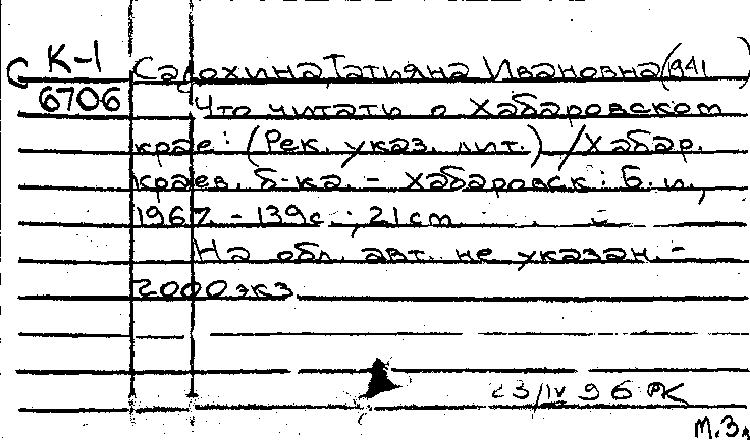 К-1 Садохина, Татьяна Ивановна (1941
6706 Что читать о Хабаровском
крае: (Рек. указ. лит.) / Хабар.
краев. б-ка. - Хабаровск: Б. и.,
1967. - 139с.; 21 cm
На обл. авт. не указан. -
2000 экз.
23/IV 96
М.З.